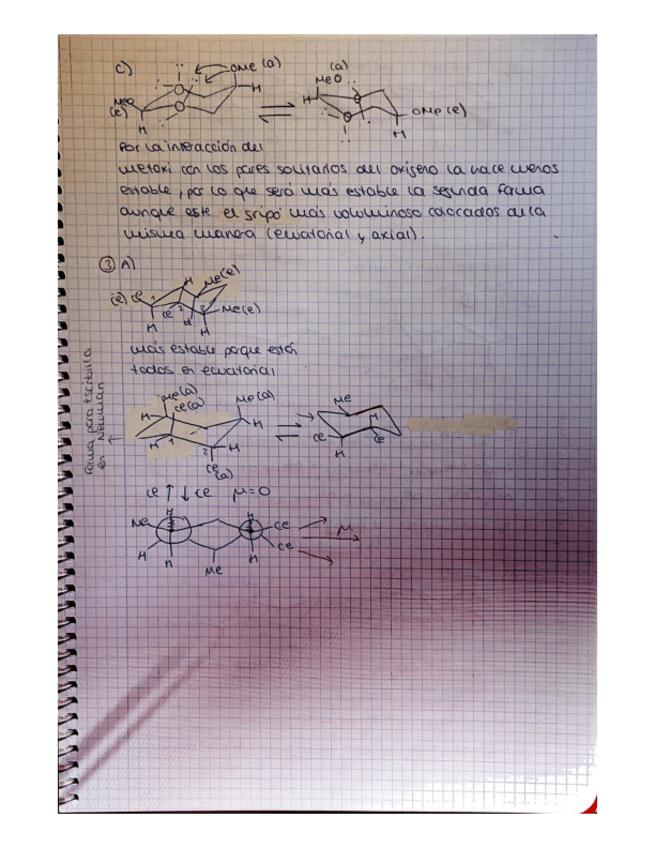 c) OMe (a) (a)
MeO
H H
MeO OMe (e)
(e)
H H
Por la interacción del
metoxi con los pares solitarios del oxígeno la hace menos
estable, por lo que será más estable la segunda forma
aunque este el grupo más voluminoso colocados de la
misma manera (ecuatorial y axial).
③ A)
H Me(e)
(e) ce 1
ce 2 3 Me(e)
H H H
más estable porque están
todos en ecuatorial
Me(a)
ce(a) Me(a) Me
H H H
H 1 2 H ce ce
ce H
(a)
forma para escribirla
en Newman
ce ↑ ↓ ce μ=0
H H
Me ce μ
ce
H H H
Me